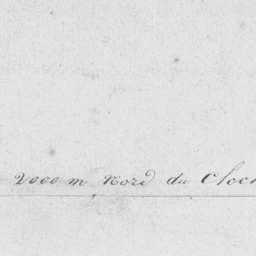 2000 m Nord du Cloc